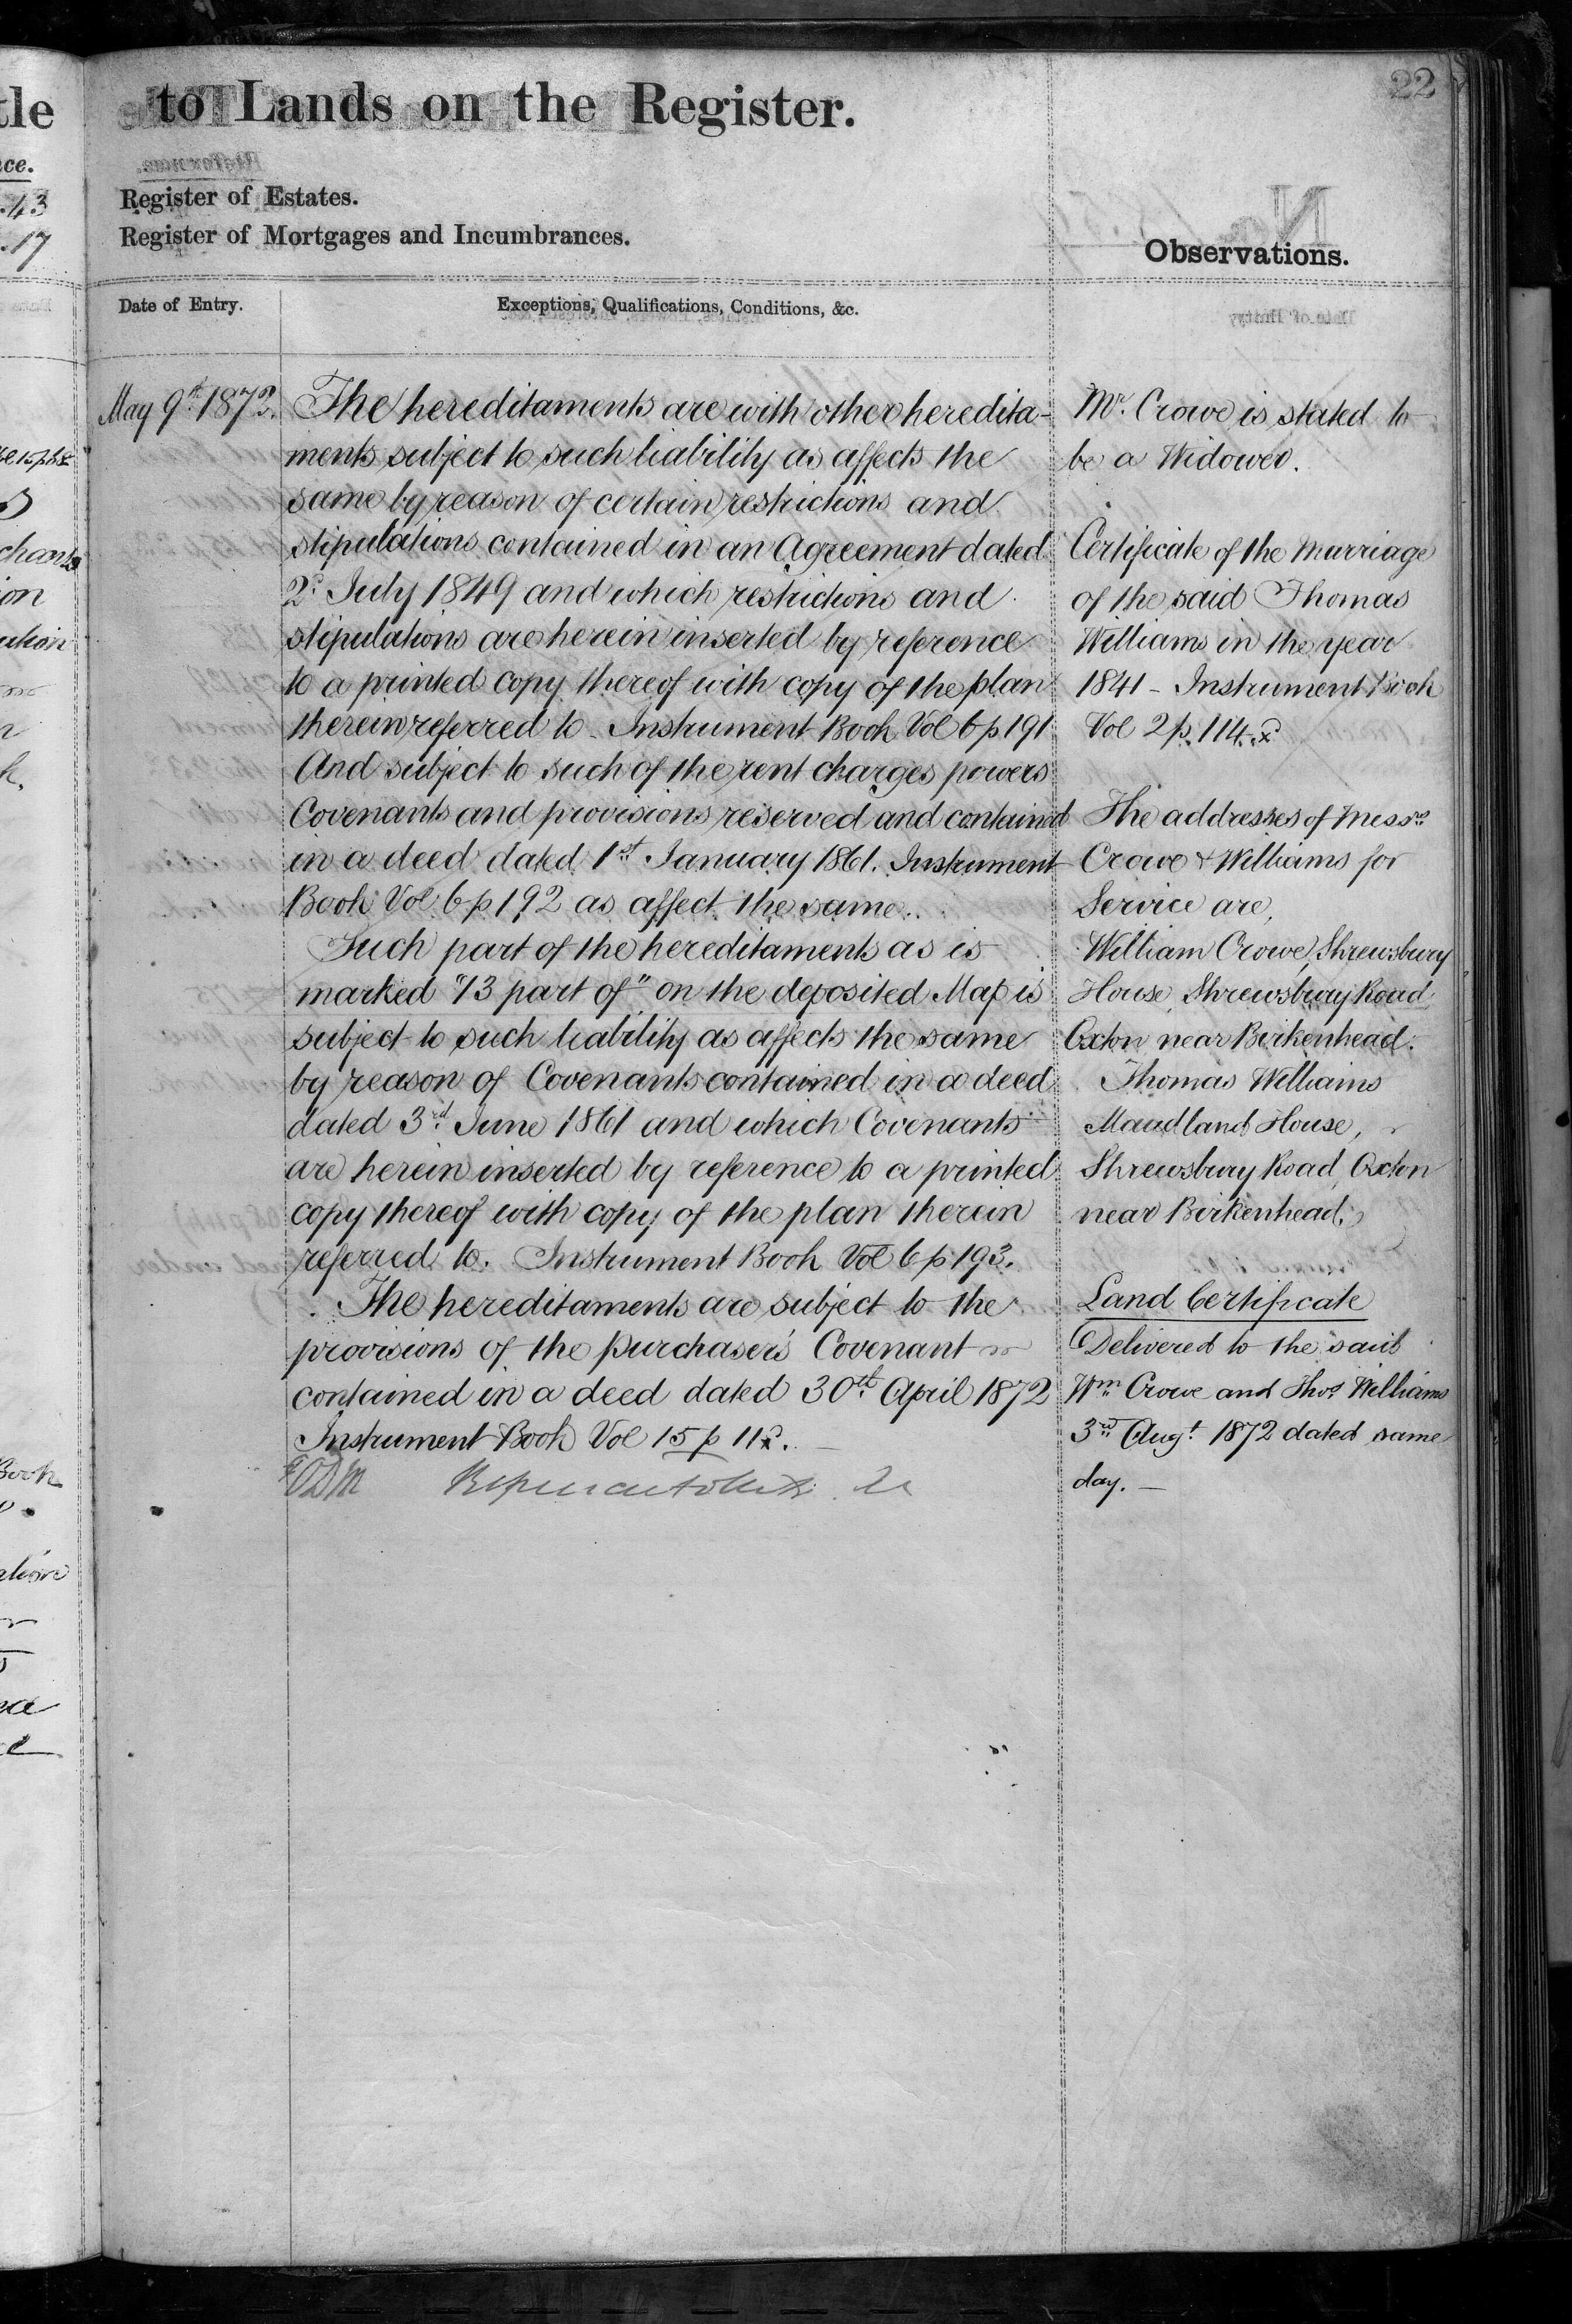 22
to Lands on the Register.
Register of Estates.
Register of Mortgages and Incumbrances.
Observations.
Date of Entry.
Exceptions, Qualifications, Conditions, &c.
May 9th 1872.
The hereditaments are with other heredita-
ments subject to such liability as affects the
same by reason of certain restrictions and
stipulations contained in an Agreement dated
2d July 1849 and which restrictions and
stipulations are herein inserted by reference
to a printed copy thereof with copy of the plan
therein referred to - Instrument Book Vol 6 p 191
And subject to such of the rent charges powers
Covenants and provisions reserved and contained
in a deed dated 1st January 1861. Instrument
Book Vol 6 p 192 as affect the same.
Such part of the hereditaments as is
marked "73 part of" on the deposited Map is
subject to such liability as affects the same
by reason of Covenants contained in a deed
dated 3rd June 1861 and which Covenants
are herein inserted by reference to a printed
copy thereof with copy of the plan therein
referred to. Instrument Book Vol 6 p 193.
The hereditaments are subject to the
provisions of the purchaser's Covenant
contained in a deed dated 30th April 1872
Instrument Book Vol 15 p 11
Mr. Crowe is stated to
be a Widower.
Certificate of the Marriage
of the said Thomas
Williams in the year
1841 - Instrument Book
Vol 2 p. 114
The addresses of Messrs
Crowe & Williams for
Service are,
William Crowe, Shrewsbury
House, Shrewsbury Road,
Oxton near Birkenhead.
Thomas Williams
Maudland House,
Shrewsbury Road, Oxton
near Birkenhead.
Land Certificate
Delivered to the said
Wm Crowe and Thos Williams
3rd Augt. 1872 dated same
day. -